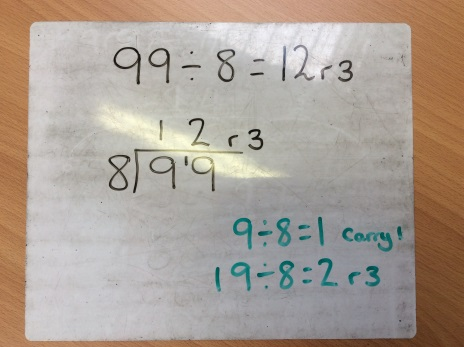 99÷8=12r3
12r3
8)9¹9
9÷8=1 Carry!
19÷8=2 r3